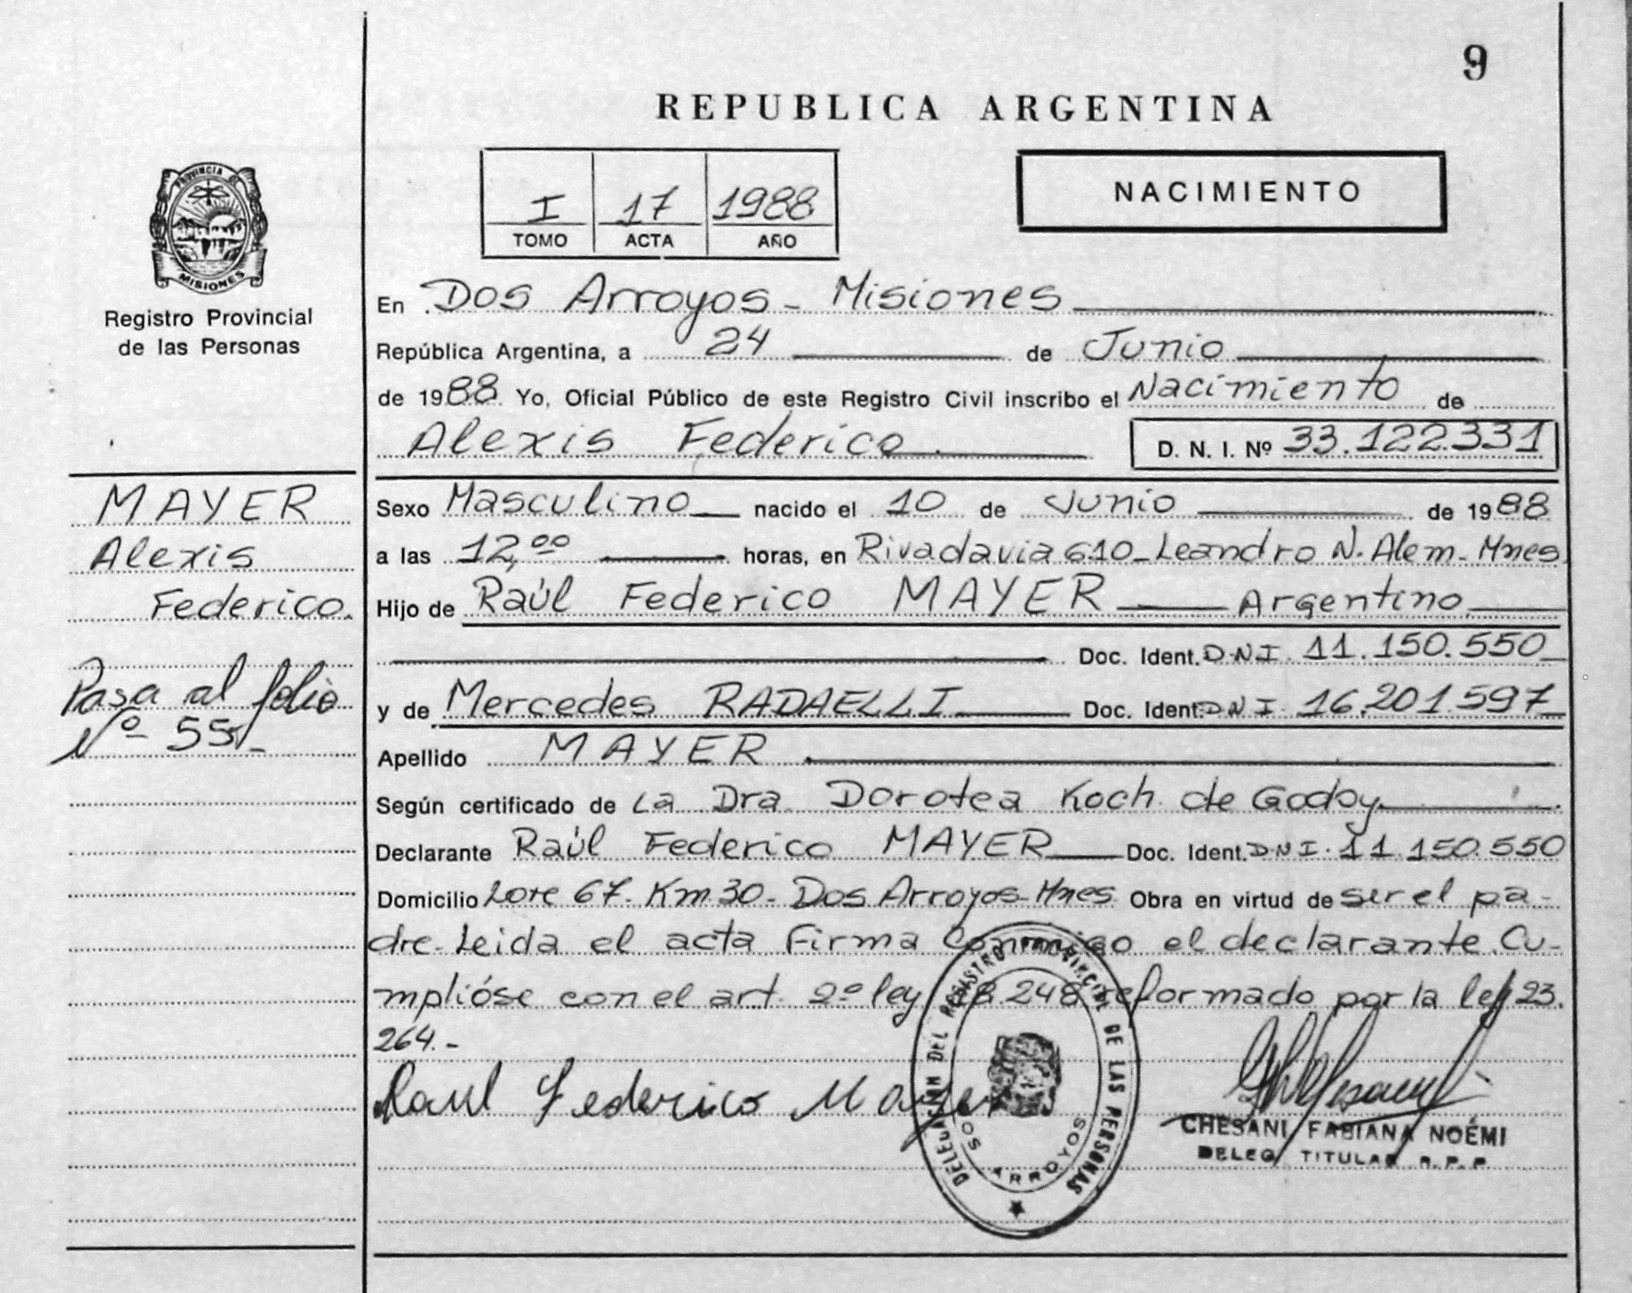 9
REPUBLICA ARGENTINA
I 17 1988
TOMO ACTA AÑO
NACIMIENTO
PROVINCIA DE
MISIONES
Registro Provincial
de las Personas
En Dos Arroyos - Misiones
República Argentina, a 24 de Junio
de 1988. Yo, Oficial Público de este Registro Civil inscribo el Nacimiento de
Alexis Federico D. N. I. Nº 33.122.331
MAYER
Alexis
Federico.
Pasa al folio
Nº 55
Sexo Masculino nacido el 10 de Junio de 1988
a las 12,00 horas, en Rivadavia 610 - Leandro N. Alem - Mnes
Hijo de Raúl Federico MAYER Argentino
Doc. Ident. D.N.I. 11.150.550
y de Mercedes RADAELLI Doc. Ident. D.N.I. 16.201.597
Apellido MAYER
Según certificado de La Dra Dorotea Koch de Godoy
Declarante Raúl Federico MAYER Doc. Ident. D.N.I. 11.150.550
Domicilio Lote 67 - Km 30 - Dos Arroyos - Mnes Obra en virtud de ser el pa-
dre. Leida el acta Firma Conmigo el declarante. Cu-
mplióse con el art. 2º ley 18.248 reformado por la ley 23.
264.-
Raul Federico Mayer
DELEGACION DEL REGISTRO PROVINCIAL DE LAS PERSONAS
DOS ARROYOS
CHESANI FABIANA NOÉMI
DELEG. TITULAR R.P.P.